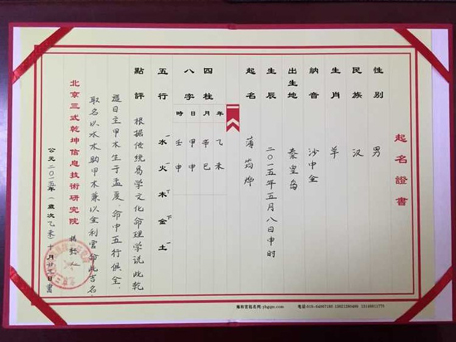 起名證書
性别 男
民族 汉
生肖 羊
納音 沙中金
出生地 秦皇岛
生辰 二〇一五年五月八日申时
起名 薄筠烨
四柱 年 月 日 時
八字 乙未 辛巳 甲申 壬申
五行 水 火 木 金 土
點評 根据传统易学文化命理学说此乾
造日主甲木生于孟夏,命中五行俱全,
取名以水木助甲木兼以金利官命此吉名
北京三式乾坤信息技術研究院
公元二〇一五年(歲次乙未)十月